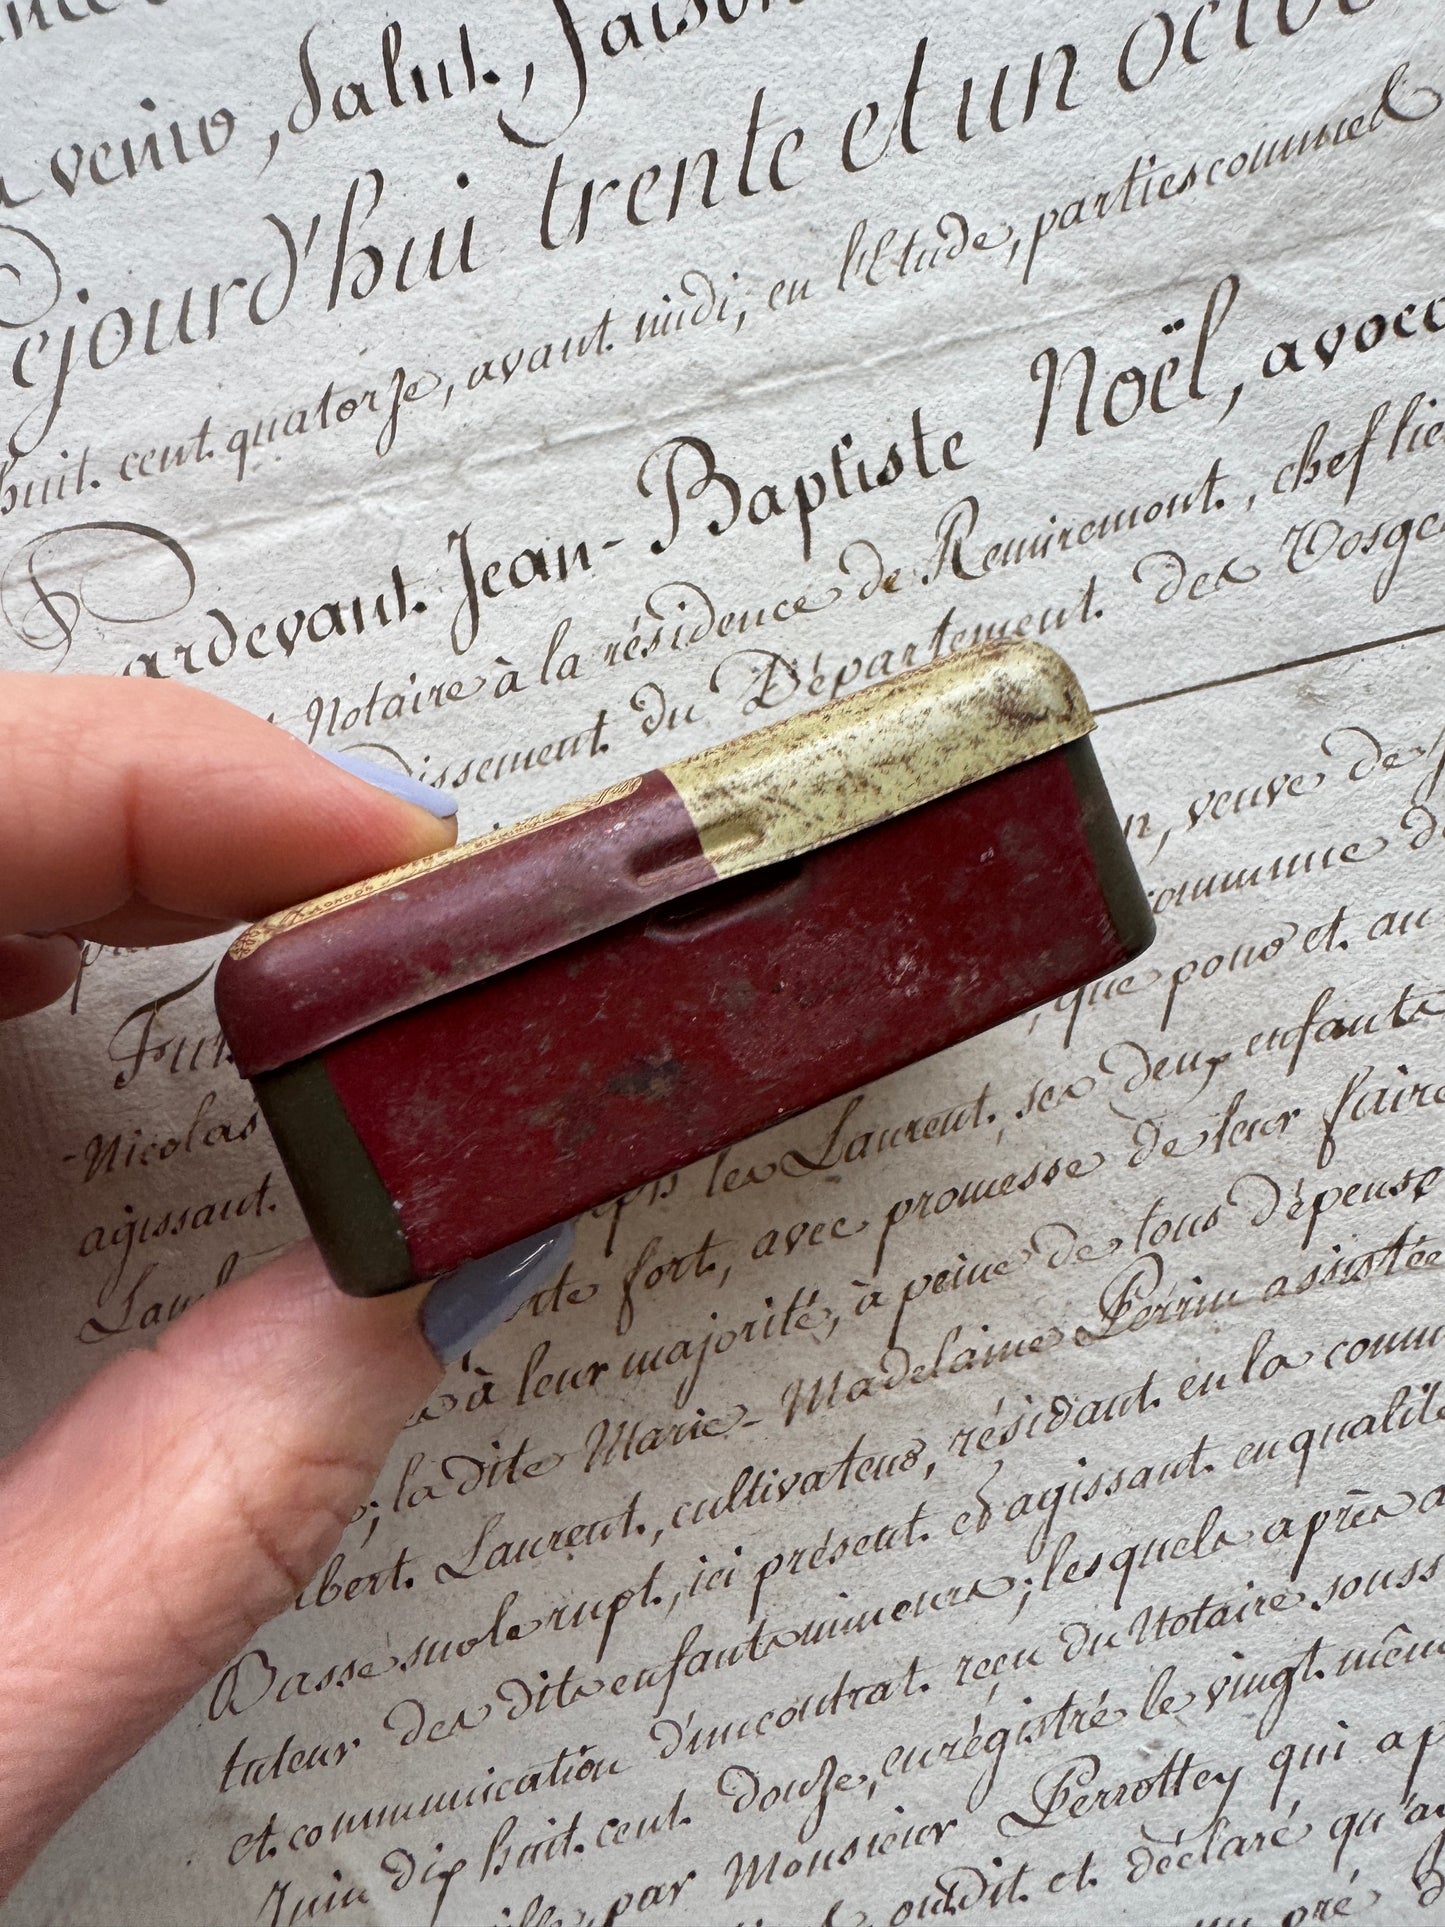 a venir, Salut, Faison
Cejourd'hui trente et un octob
huit cent quatorze, avant midi, en l'Etude, parties comme
Pardevant Jean-Baptiste Noël, avoc
Notaire à la résidence de Remiremont, chef lie
issement du Département des Vosges
veuve de
comme
Fu
que pour et au
-Nicolas
les Laurent, ses deux enfants
agissant
fort, avec promesse de leur faire
Lau
à leur majorité, à peine de tous dépens
; la dite Marie-Madelaine Perrin assistée
bert Laurent, cultivateur, résidant en la comm
Basse sur le rupt, ici présent et agissant en qualité
tuteur des dits enfants mineurs; lesquels après a
et communication d'un contrat reçu du Notaire souss
Juin dix huit cent douze, enrégistré le vingt même
par Monsieur Perrottey qui ap
ont dit et déclaré qu'a
pré